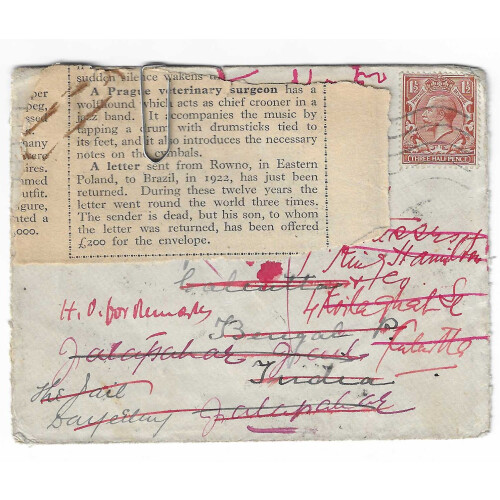 per
peg,
many
were
ires.
med
utfit.
igure,
nted a
,000.
sudden silence wakens
A Prague veterinary surgeon has a
wolfhound which acts as chief crooner in a
jazz band. It accompanies the music by
tapping a drum with drumsticks tied to
its feet, and it also introduces the necessary
notes on the cymbals.
A letter sent from Rowno, in Eastern
Poland, to Brazil, in 1922, has just been
returned. During these twelve years the
letter went round the world three times.
The sender is dead, but his son, to whom
the letter was returned, has been offered
£200 for the envelope.
1½ 1½
THREE HALFPENCE
King Hamilton
& Co
Calcutta
4 Koilaghat St
H.O. for Remarks
Bengal
Calcutta
Jalapahar
India
The Jail
Darjeeling Jalapahar